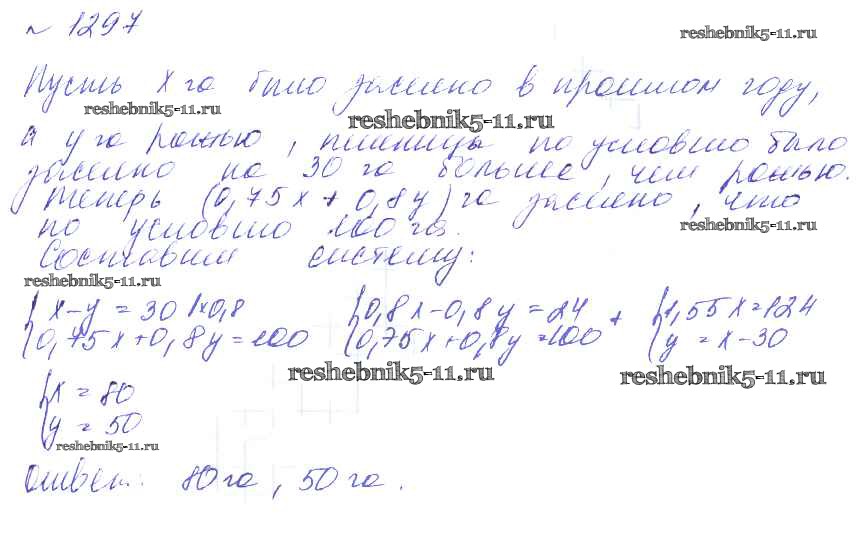 № 1297
reshebnik5-11.ru
Пусть x га было засеяно в прошлом году,
reshebnik5-11.ru
reshebnik5-11.ru
а y га рожью, пшеницы по условию было
засеяно на 30 га больше, чем рожью.
Теперь (0,75x + 0,8y) га засеяно, что
по условию 100 га.
reshebnik5-11.ru
Составим систему:
reshebnik5-11.ru
{ x - y = 30 | ×0,8 { 0,8x - 0,8y = 24 + { 1,55x = 124
0,75x + 0,8y = 100 0,75x + 0,8y = 100 y = x - 30
reshebnik5-11.ru
reshebnik5-11.ru
{ x = 80
y = 50
reshebnik5-11.ru
Ответ: 80 га, 50 га.